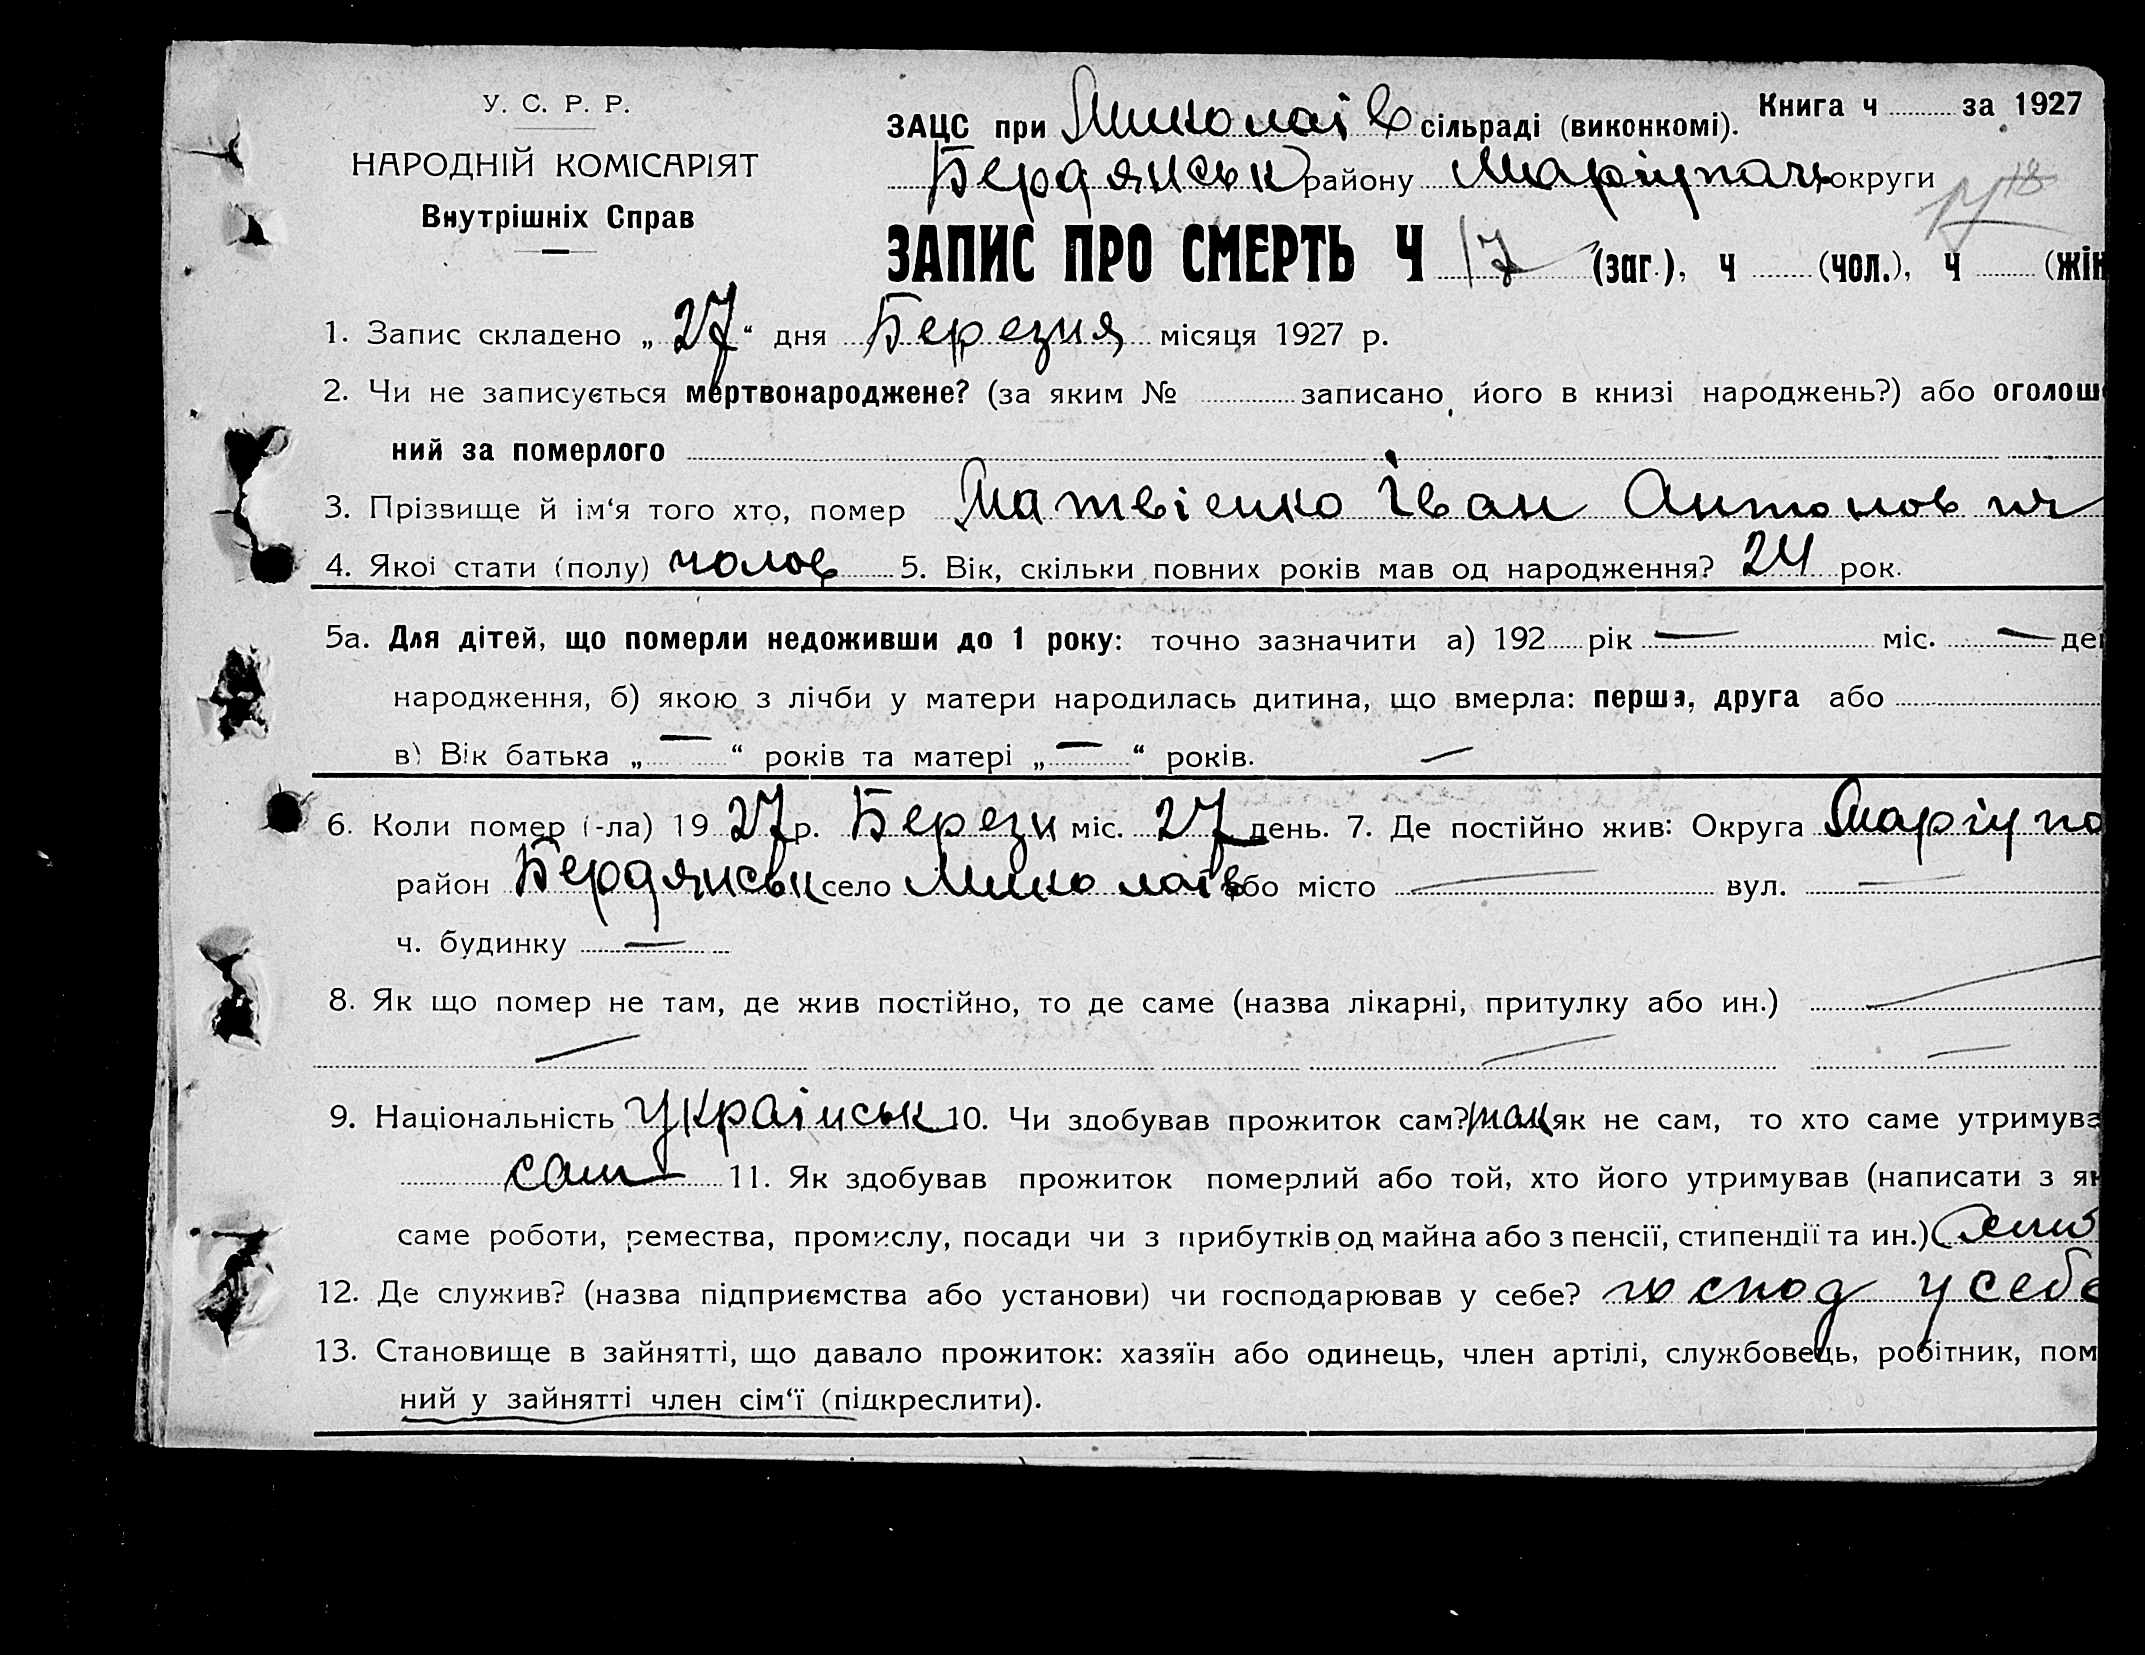 У. С. Р. Р.
НАРОДНІЙ КОМІСАРІЯТ
Внутрішніх Справ
Книга ч за 1927
ЗАЦС при Миколаїв сільраді (виконкомі).
Бердянськ району округи
ЗАПИС ПРО СМЕРТЬ Ч 17 (заг.), ч (чол.), ч (жін
1. Запис складено „ 27 “ дня Березня місяця 1927 р.
2. Чи не записується мертвонароджене? (за яким № записано його в книзі народжень?) або оголош
ний за померлого
3. Прізвище й ім‘я того хто, помер Матвієнко Іван Антонович
4. Якоі стати (полу) чолов 5. Вік, скільки повних років мав од народження? 24 рок.
5а. Для дітей, що померли недоживши до 1 року: точно зазначити а) 192 рік — міс. — де
народження, б) якою з лічби у матери народилась дитина, що вмерла: перша, друга або
в) Вік батька „ — “ років та матері „ — “ років. —
6. Коли помер (-ла) 19 27 р. Березн міс. 27 день. 7. Де постійно жив: Округа Маріупо
район Бердянськ село Миколаїв або місто — вул. —
ч. будинку —
8. Як що помер не там, де жив постійно, то де саме (назва лікарні, притулку або ин.) —
9. Національність Українськ 10. Чи здобував прожиток сам? так як не сам, то хто саме утримува
сам 11. Як здобував прожиток померлий або той, хто його утримував (написати з як
саме роботи, ремества, промислу, посади чи з прибутків од майна або з пенсії, стипендії та ин.)
12. Де служив? (назва підприємства або установи) чи господарював у себе? господ у себе
13. Становище в зайнятті, що давало прожиток: хазяїн або одинець, член артілі, службовець, робітник, пом
ний у зайнятті член сім‘ї (підкреслити).